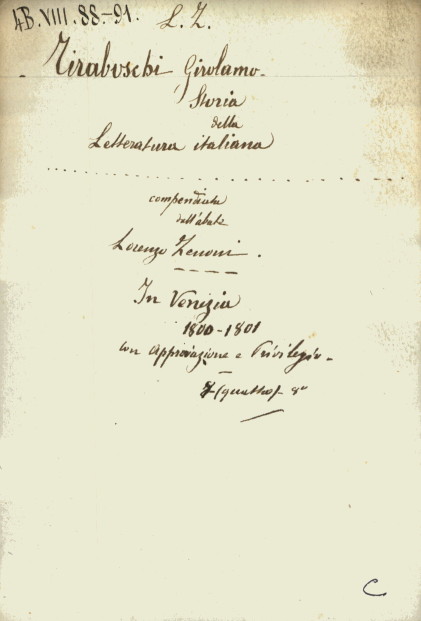 4B.VIII.88-91. L. Z.
Tiraboschi, Girolamo.
Storia
della
Letteratura italiana
compendiata
dall'abate
Lorenzo Zenoni.
In Venezia
1800-1801
con Approvazione e Privilegio.
(quattro) 8°
C